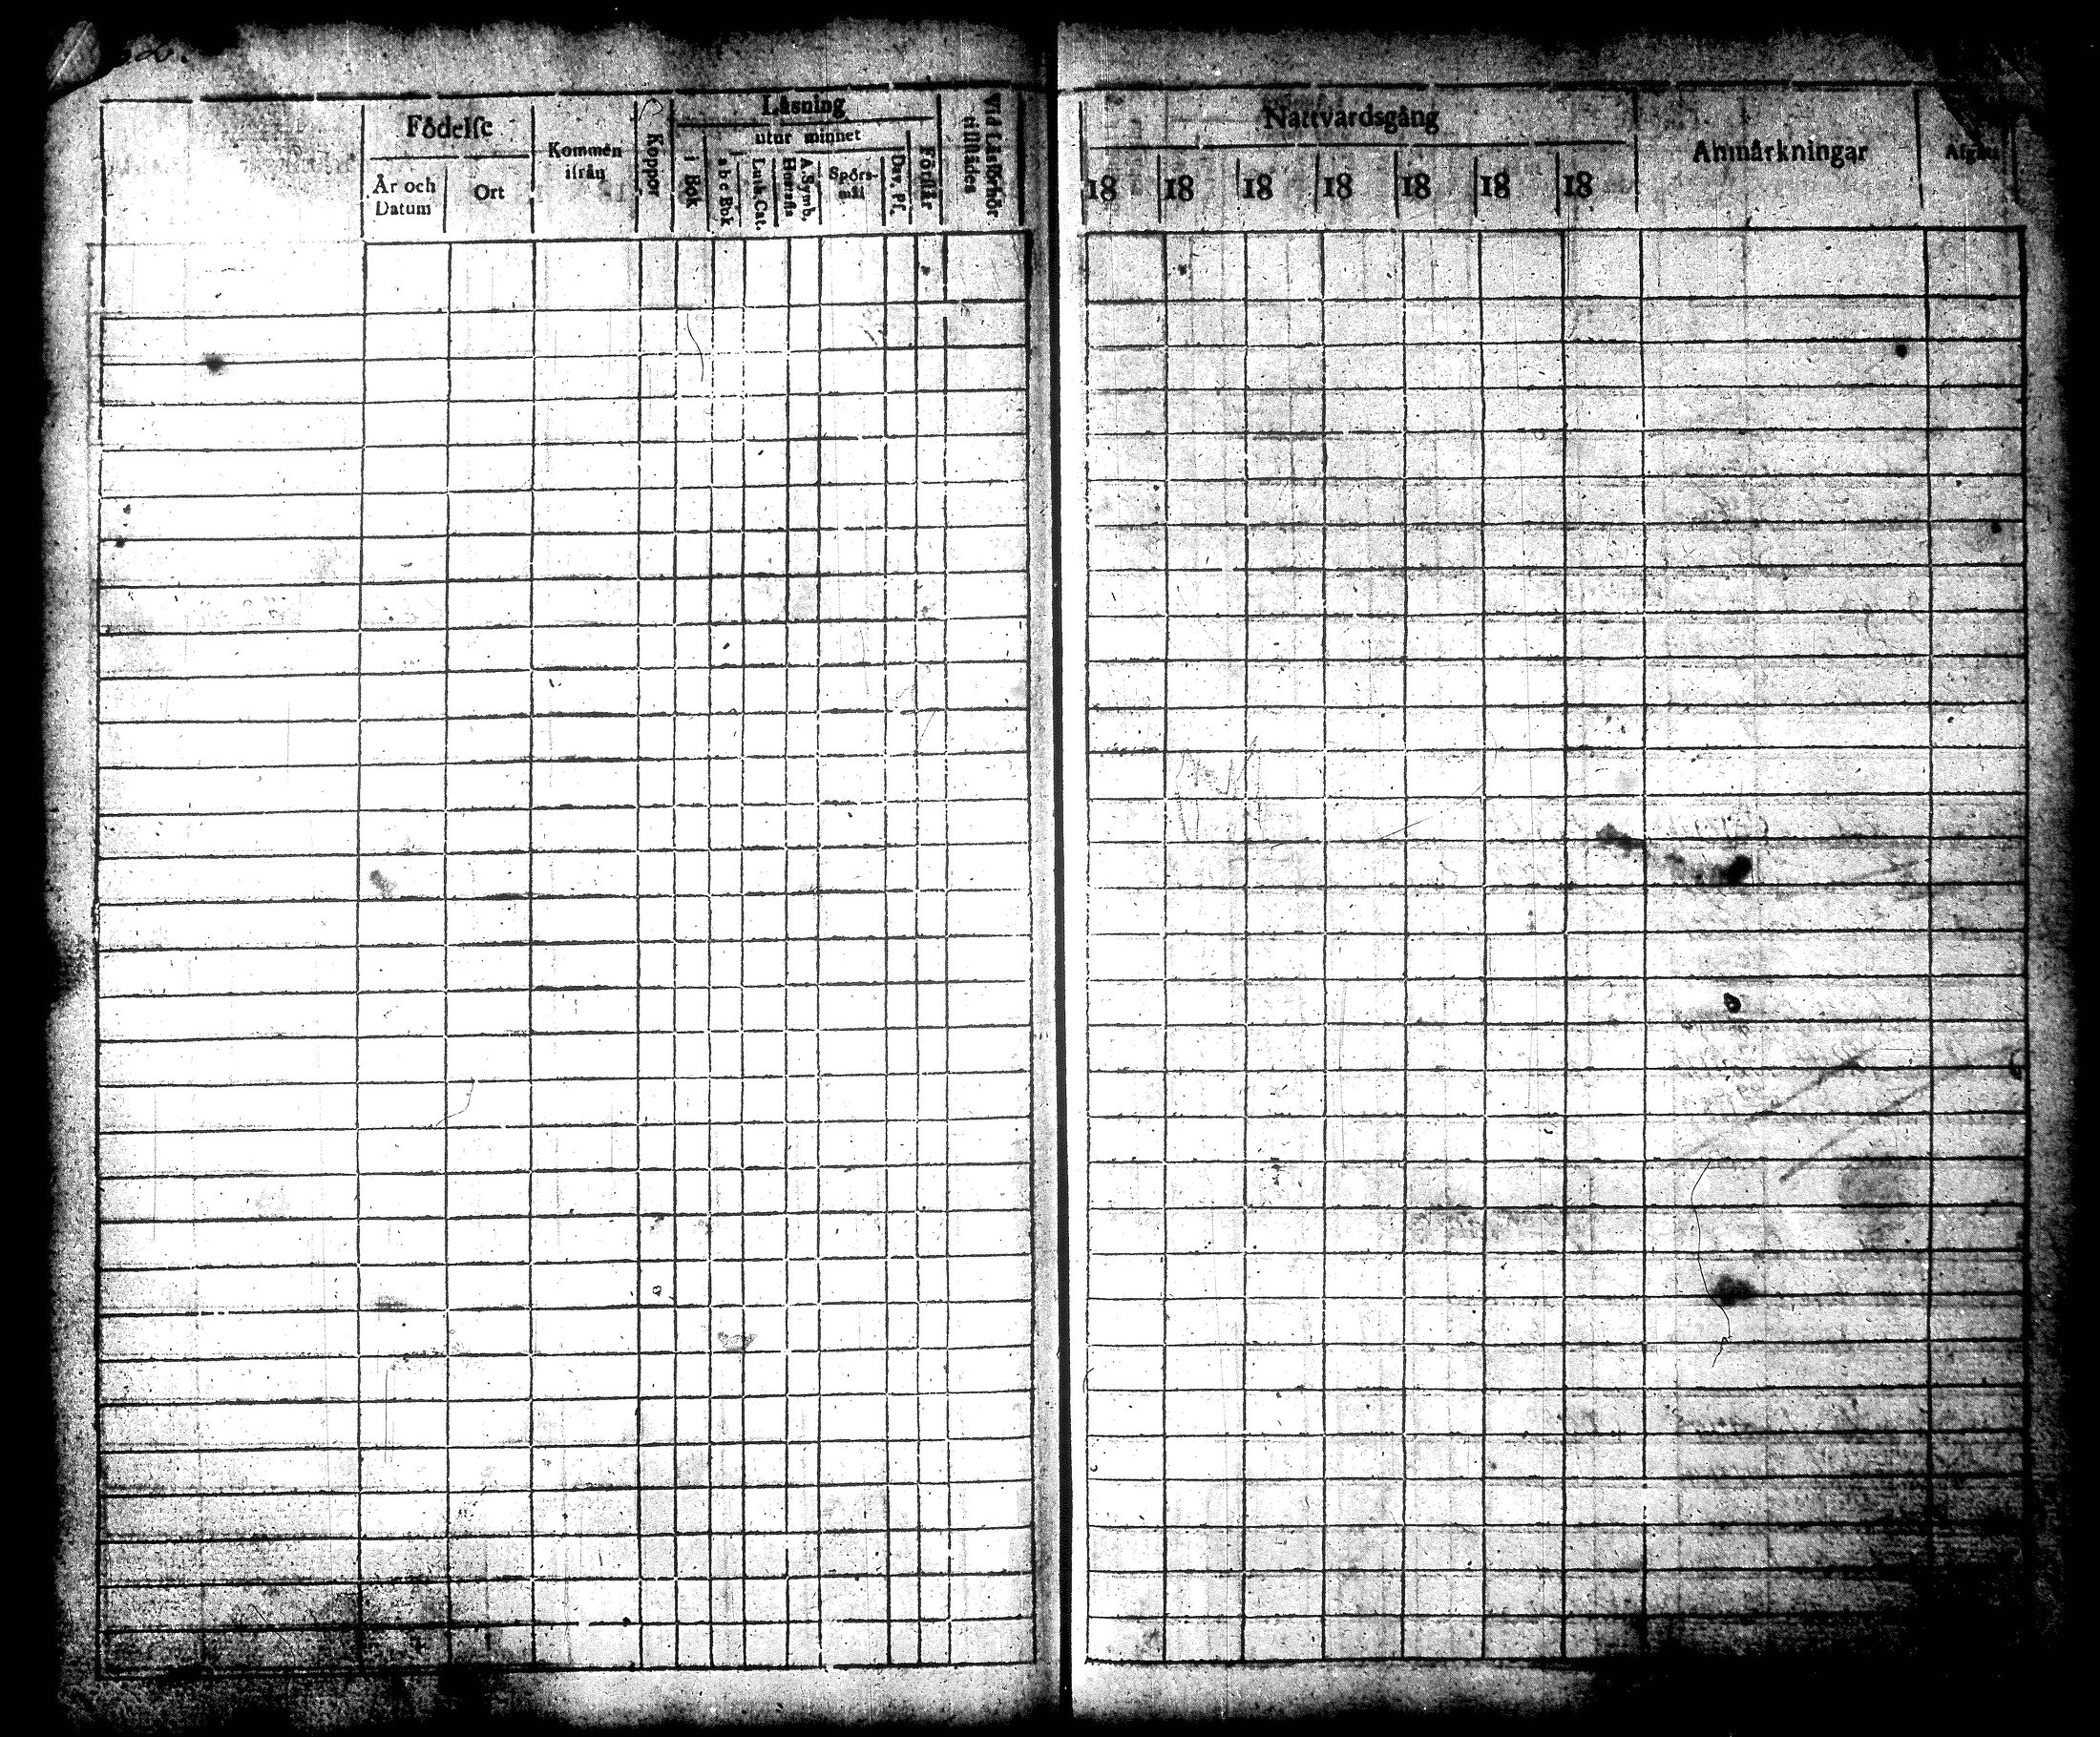 Födelse
År och Datum
Ort
Kommen ifrån
Koppor
Läsning
i Bok
utur minnet
a b c Bok
Luth. Cat.
Hustafla
A. Symb.
Spörsmål
Dav. Ps.
Förstår
Vid Läsförhör tillstädes
Nattvardsgång
18 18 18 18 18 18 18
Anmärkningar